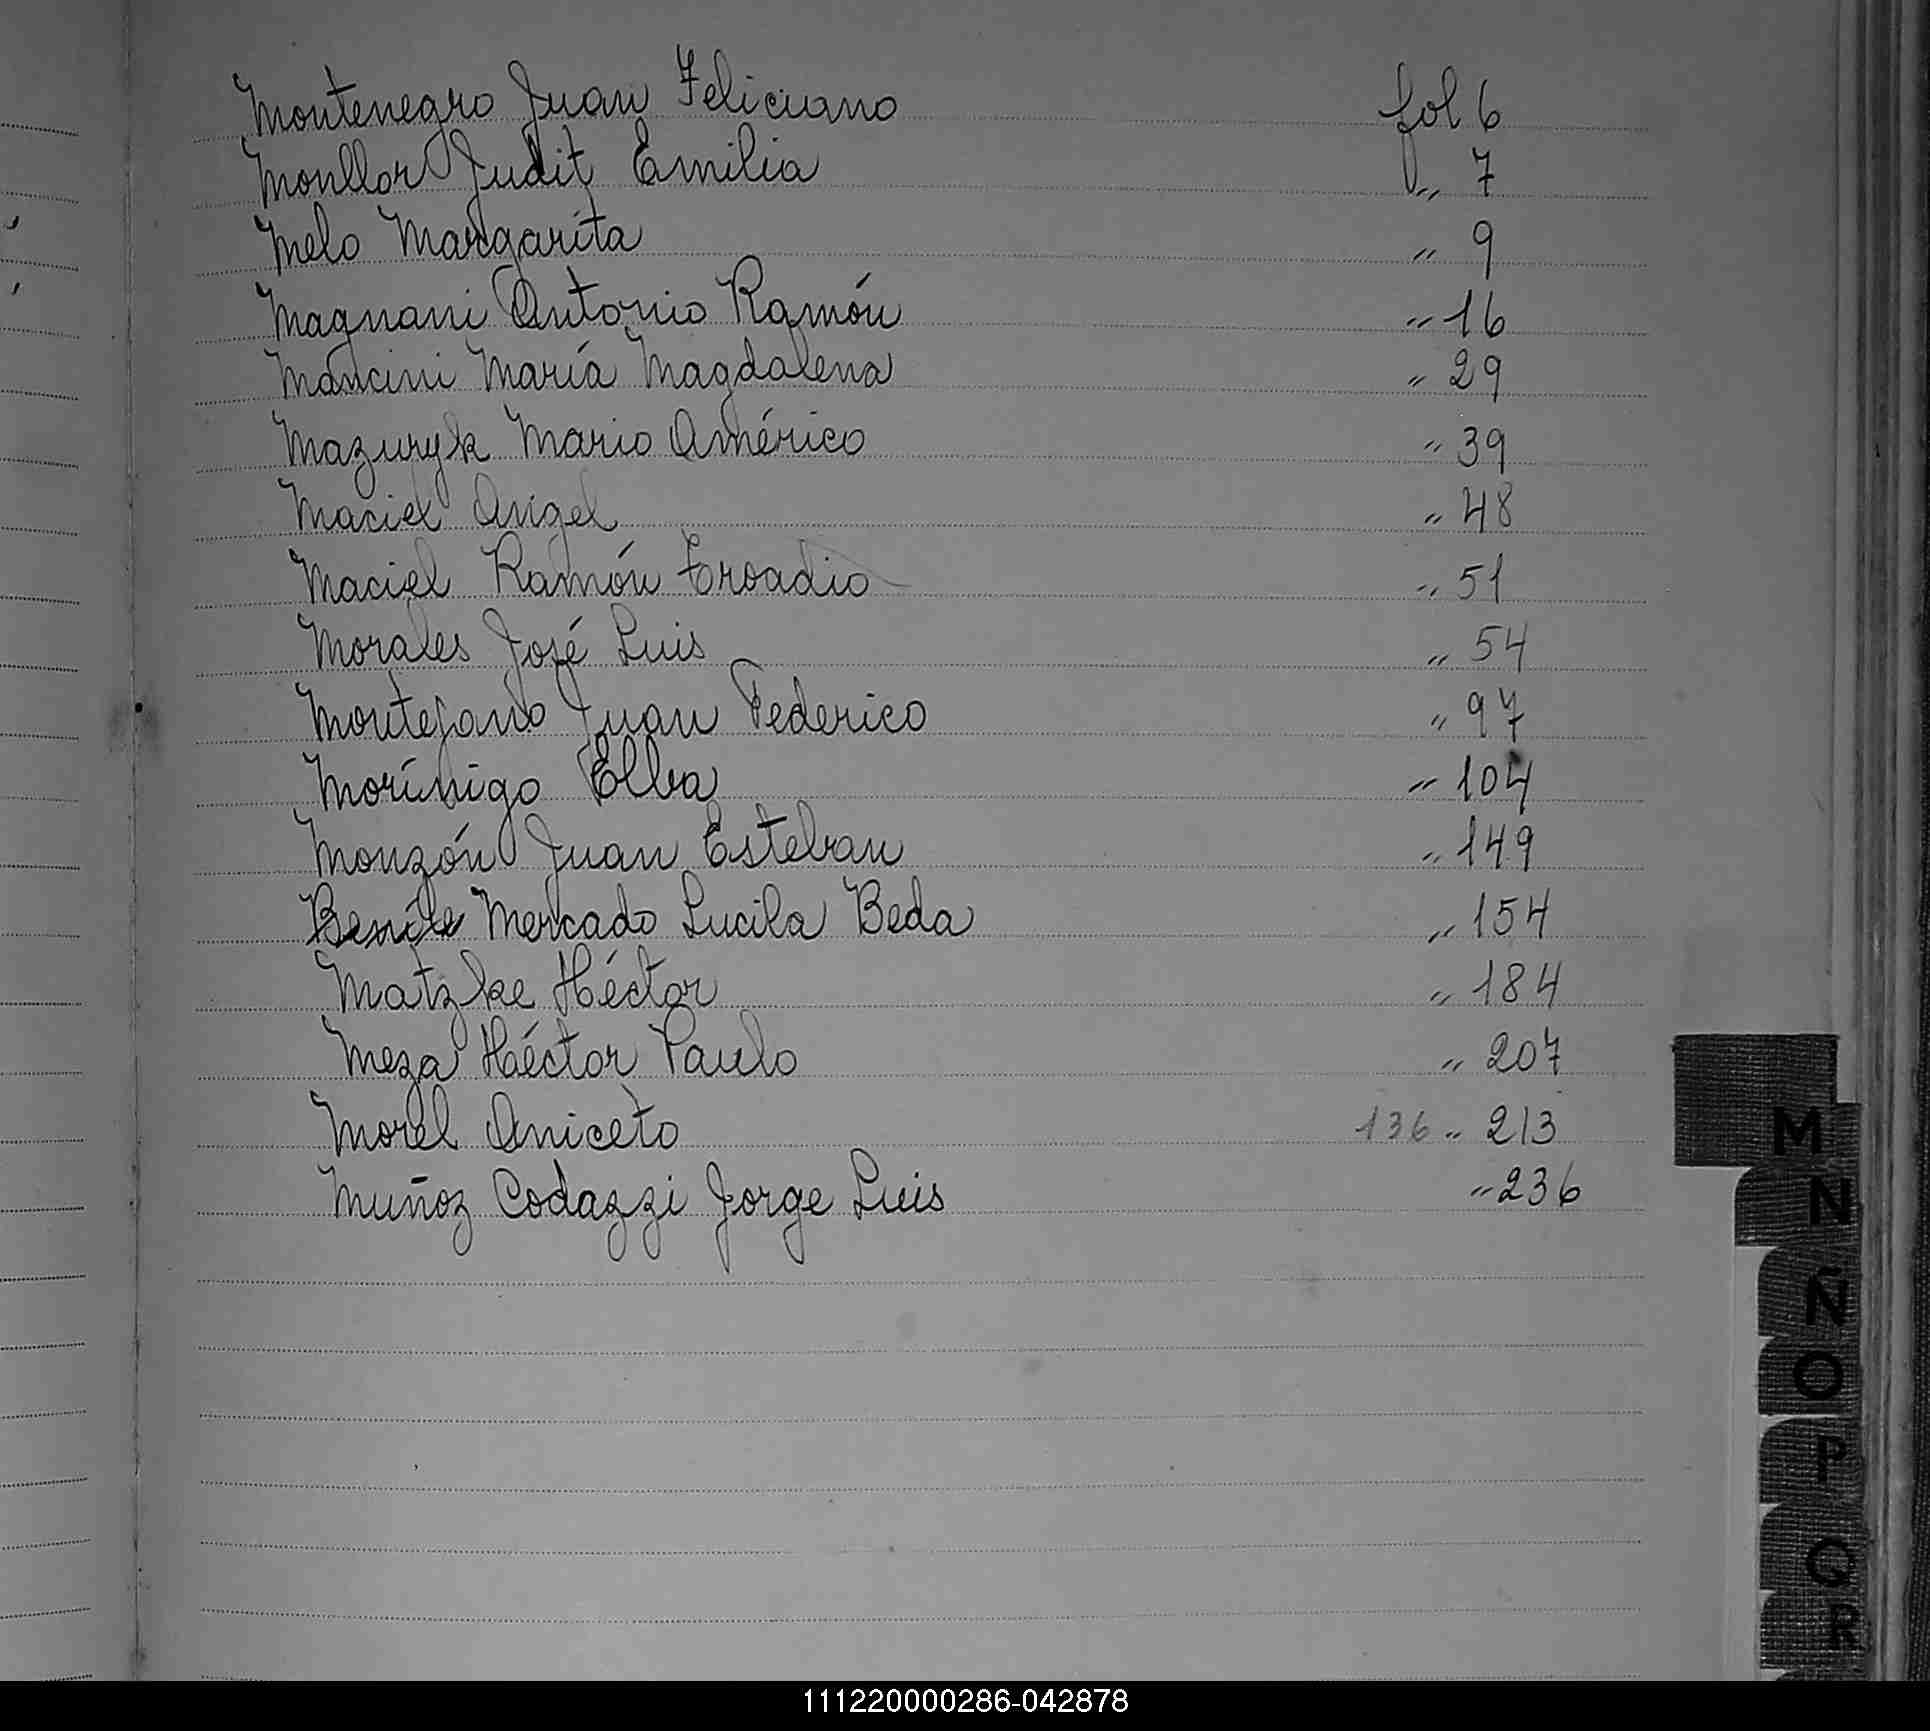 Montenegro Juan Feliciano fol 6
Monllor Judit Emilia " 7
Melo Margarita " 9
Magnani Antonio Ramón " 16
Mancini María Magdalena " 29
Mazuryk Mario Américo " 39
Maciel Angel " 48
Maciel Ramón Eroadio " 51
Morales José Luis " 54
Montejano Juan Federico " 97
Morínigo Elba " 104
Monzón Juan Esteban " 149
Mercado Lucila Beda " 154
Matzke Héctor " 184
Meza Héctor Paulo " 207
Morel Aniceto 136 " 213
Muñoz Codazzi Jorge Luis " 236
M
N
Ñ
O
P
Q
R
111220000286-042878